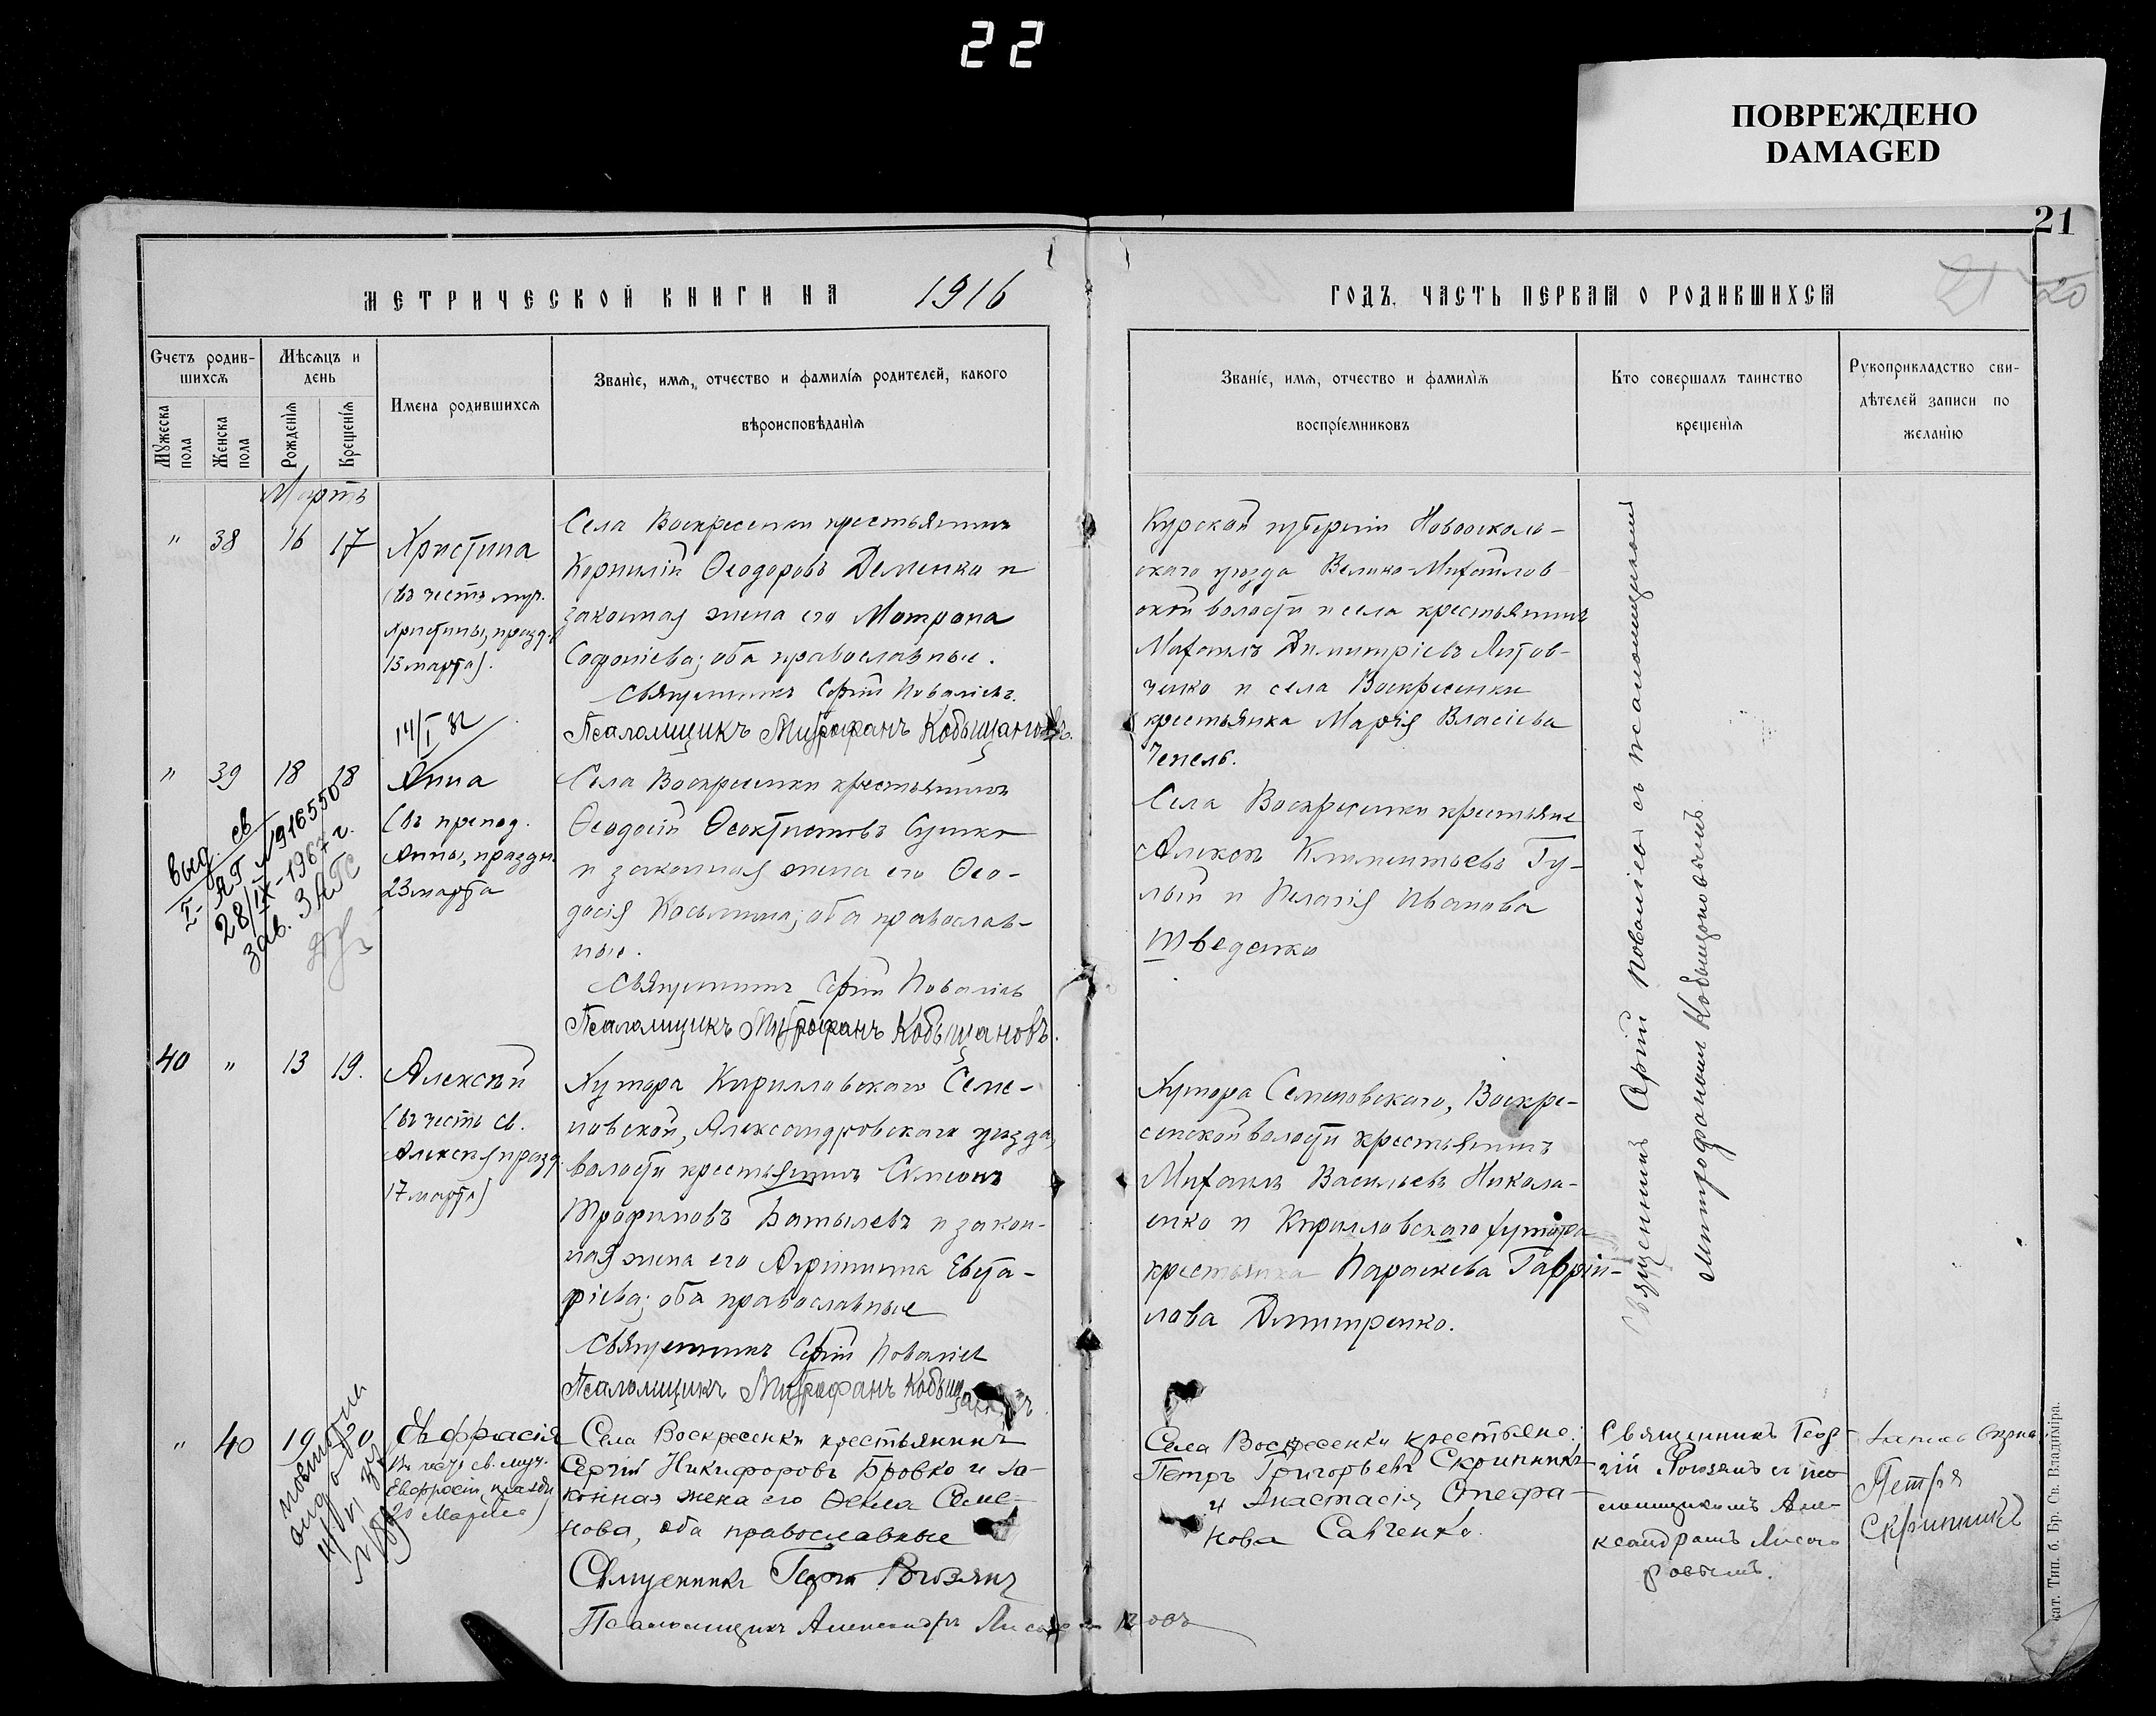 22
ПОВРЕЖДЕНО
DAMAGED
21
МЕТРИЧЕСКОЙ КНИГИ НА 1916
ГОДЪ, ЧАСТЬ ПЕРВАЯ О РОДИВШИХСЯ
20
Счетъ родив-
шихся
Мѣсяцъ и
день
Мужеска
пола
Женска
пола
Рожденія
Крещенія
Имена родившихся
Званіе, имя, отчество и фамилія родителей, какого
вѣроисповѣданія
Званіе, имя, отчество и фамилія
воспріемниковъ
Кто совершалъ таинство
крещенія
Рукоприкладство сви-
дѣтелей записи по
желанію
Мартъ
" 38 16 17
Христина
(въ честь муч.
Христины, празд.
15 марта).
14/I 32
Села Воскресенки крестьянинъ
Корнилій Ѳеодоровъ Деменко и
законная жена его Матрона
Софоніева; оба православные.
Священникъ Сергій Поваліевъ.
Псаломщикъ Митрофанъ Кобыщановъ.
Курской губерніи Новоосколь-
скаго уѣзда Велико-Михайлов-
ской волости и села крестьянинъ
Михаилъ Димитріевъ
ченко и села Воскресенки
крестьянка Марія Власіева
Чепель.
" 39 18 18
Анна
(въ препод.
Анны, праздн.
23 марта
выд. св
I-АП №9165508
28/IX-1967 г.
зав. ЗАГС
Села Воскресенки крестьянинъ
Ѳеодосій Ѳеоктистовъ Сушко
и законная жена его Ѳео-
досія Косьмина; оба православ-
ные.
Священникъ Сергій Поваліевъ
Псаломщикъ Митрофанъ Кобыщановъ.
Села Воскресенки крестьяне
Алексѣй Климентьевъ Гу-
лый и Пелагія Иванова
Шведенко
40 " 13 19.
Алексѣй
(въ честь св.
Алексѣя празд.
17 марта)
Хутора Кирилловскаго Семе-
новской, Александровскаго уѣзда,
волости крестьянинъ Симеонъ
Трофимовъ Батылевъ и закон-
ная жена его Агриппина Евста-
фіева; оба православные
Священникъ Сергій Поваліевъ
Псаломщикъ Митрофанъ Кобыщановъ
Хутора Семеновскаго, Воскре-
сенской волости крестьянинъ
Михаилъ Васильевъ Никола-
енко и Кирилловскаго хутора
крестьянка Параскева Гавріи-
лова Дмитренко.
Священникъ Сергій Поваліевъ съ псаломщикомъ
Митрофаномъ Кобыщановымъ.
" 40 19 20
Евфрасія
въ честь св. муч.
Евфрасіи, праздн.
20 Марта)
Села Воскресенки крестьянинъ
Сергій Никифоровъ Бровко и за-
конная жена его Ѳекла Семе-
нова, оба православные
Священникъ Георгій
Псаломщикъ Александръ
Села Воскресенки крестьяне:
Петръ Григорьевъ Скрипникъ
и Анастасія Стефа-
нова Савченко.
Священникъ Геор-
гій съ пса-
ломщикомъ Але-
ксандромъ Лисого-
ровымъ.
Петръ
Скрипникъ
кат. Тип. б. Бр. Св. Владиміра.